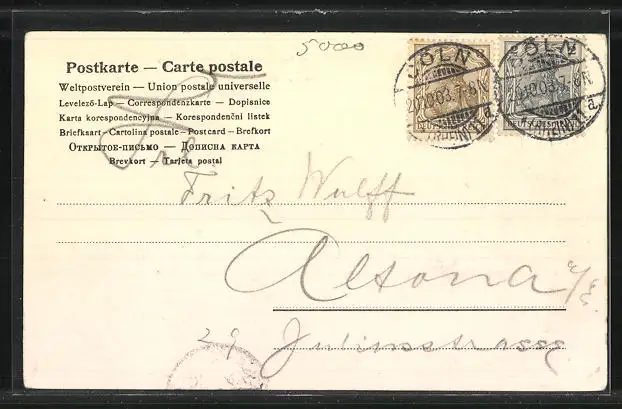 5000
Postkarte — Carte postale
Weltpostverein — Union postale universelle
Levelező-Lap — Correspondenzkarte — Dopisnice
Karta korespondencyjna — Korespondenční listek
Briefkaart — Cartolina postale — Postcard — Brefkort
Открытое-письмо — Дописна карта
Brevkort — Tarjeta postal
CÖLN
CÖLN
20.10.03.7-8N.
(RHEIN) 1 a
Fritz Wulff
Altona a/E.
29 Juliusstrasse